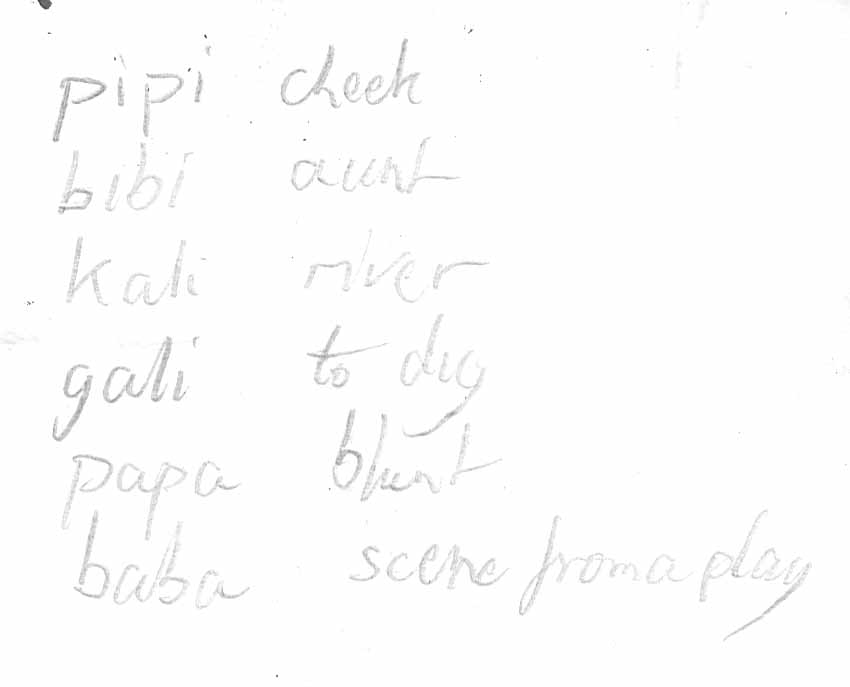 pipi cheek
bibi aunt
kali river
gali to dig
papa blunt
baba scene from a play